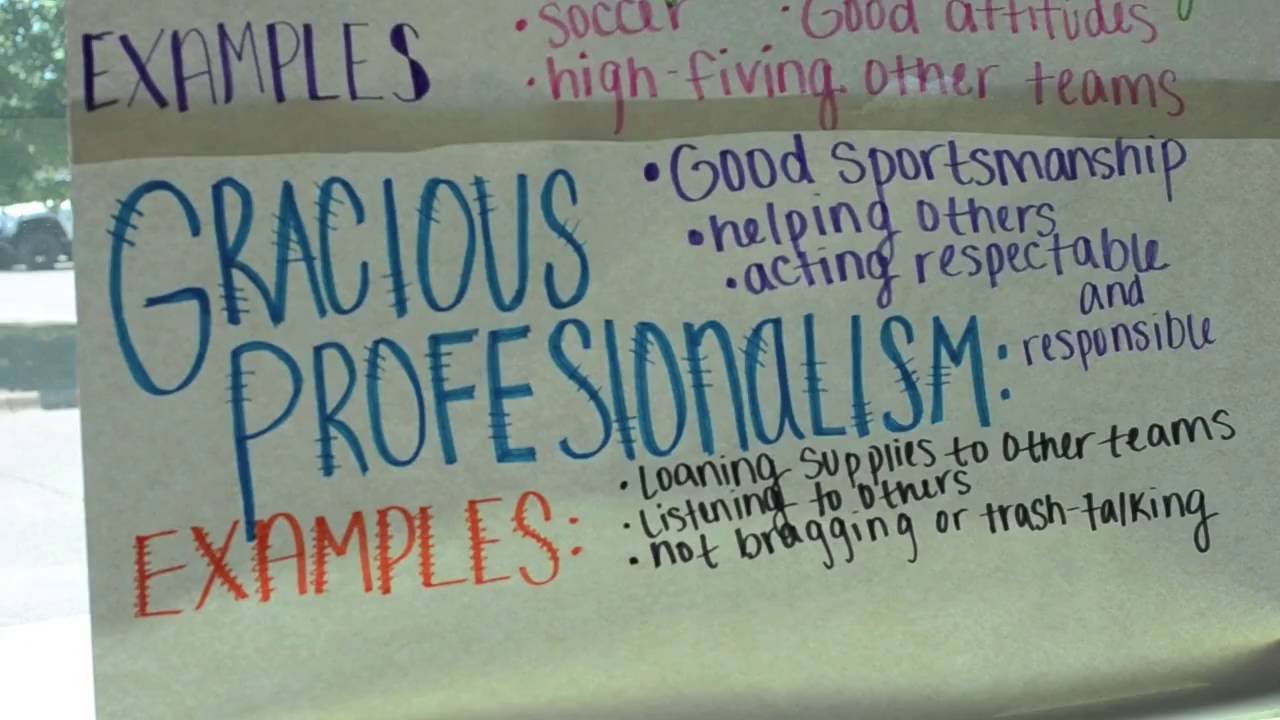 • soccer • Good attitudes
EXAMPLES
• high-fiving other teams
• Good Sportsmanship
GRACIOUS
• helping others
• acting respectable
and
responsible
PROFESIONALISM:
• Loaning supplies to other teams
EXAMPLES:
• Listening to others
• not bragging or trash-talking